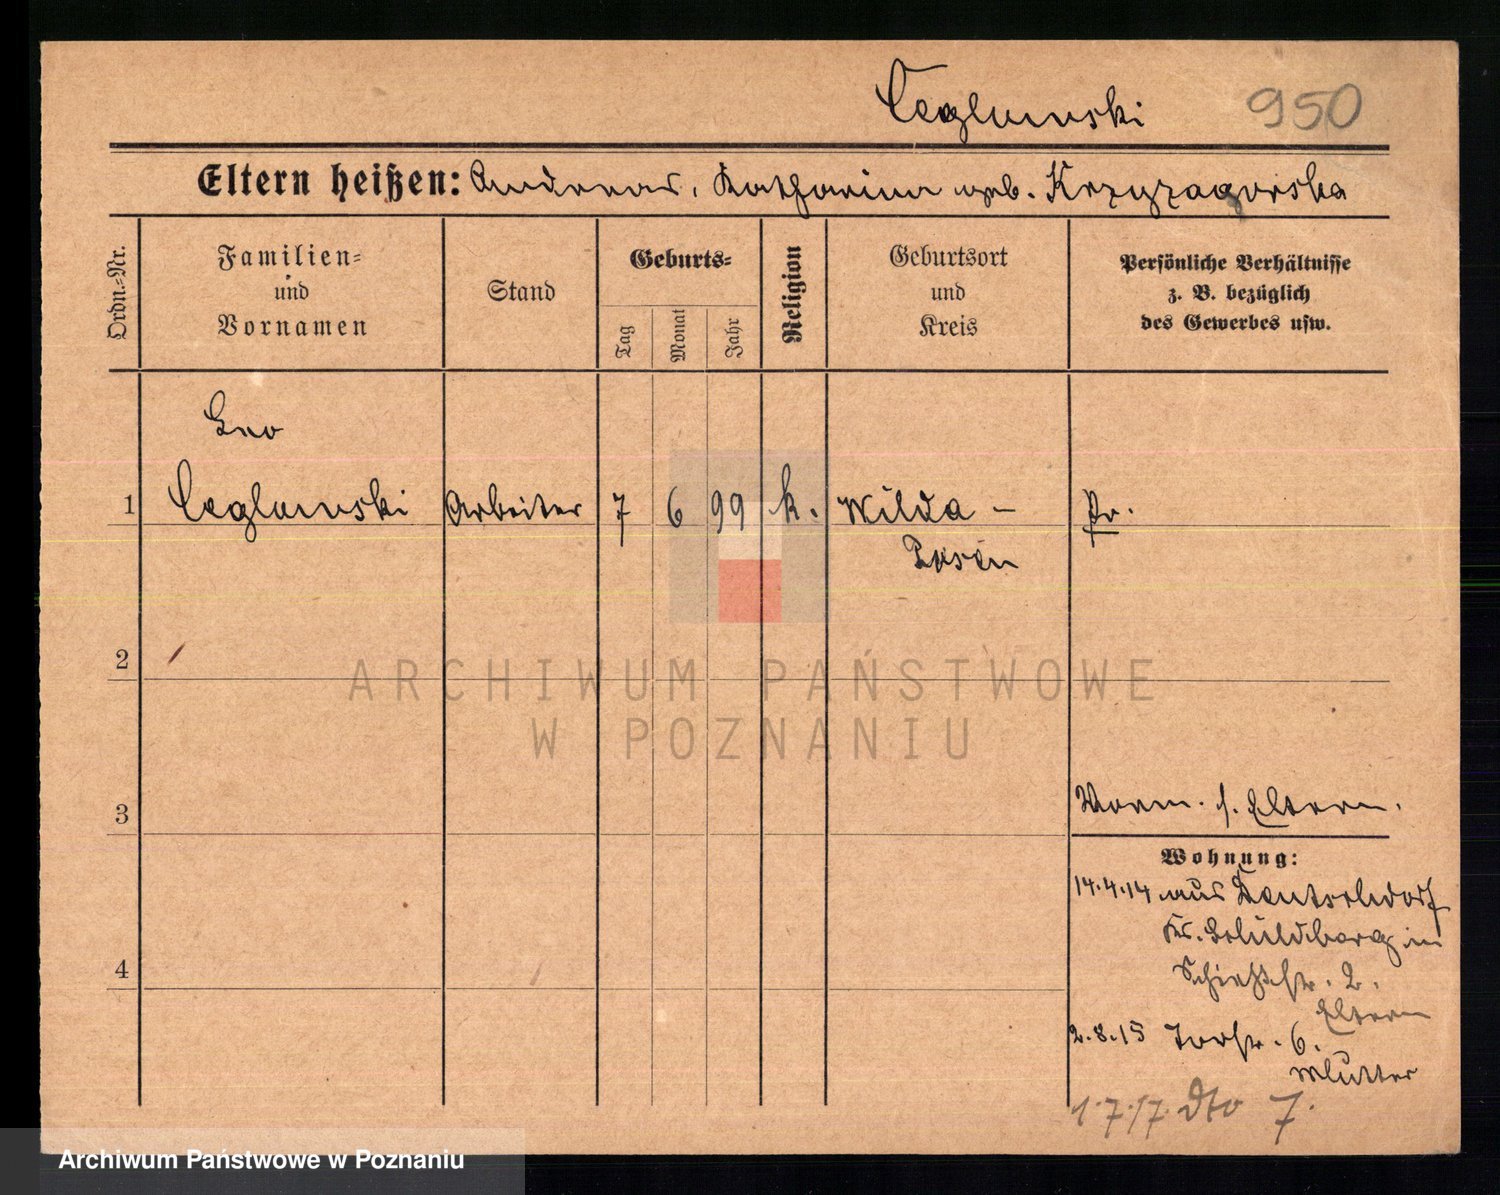 Ceglowski 950
Eltern heißen: Andreas, Katharina geb. Krzyzagorska
Ordn.-Nr.
Familien-
und
Vornamen
Stand
Geburts-
Tag
Monat
Jahr
Religion
Geburtsort
und
Kreis
Persönliche Verhältnisse
z. B. bezüglich
des Gewerbes usw.
Leo
1 Ceglowski Arbeiter 7 6 99 k. Wilda – Pr.
Posen
2
3
Vorm. s. Eltern.
Wohnung:
14.4.14 aus Deutschdorf
Kr. Schildberg in
Schießstr. 2.
Eltern
2.8.15 Torstr. 6.
Mutter
1.7.17. dto 7.
4
ARCHIWUM PAŃSTWOWE
W POZNANIU
Archiwum Państwowe w Poznaniu